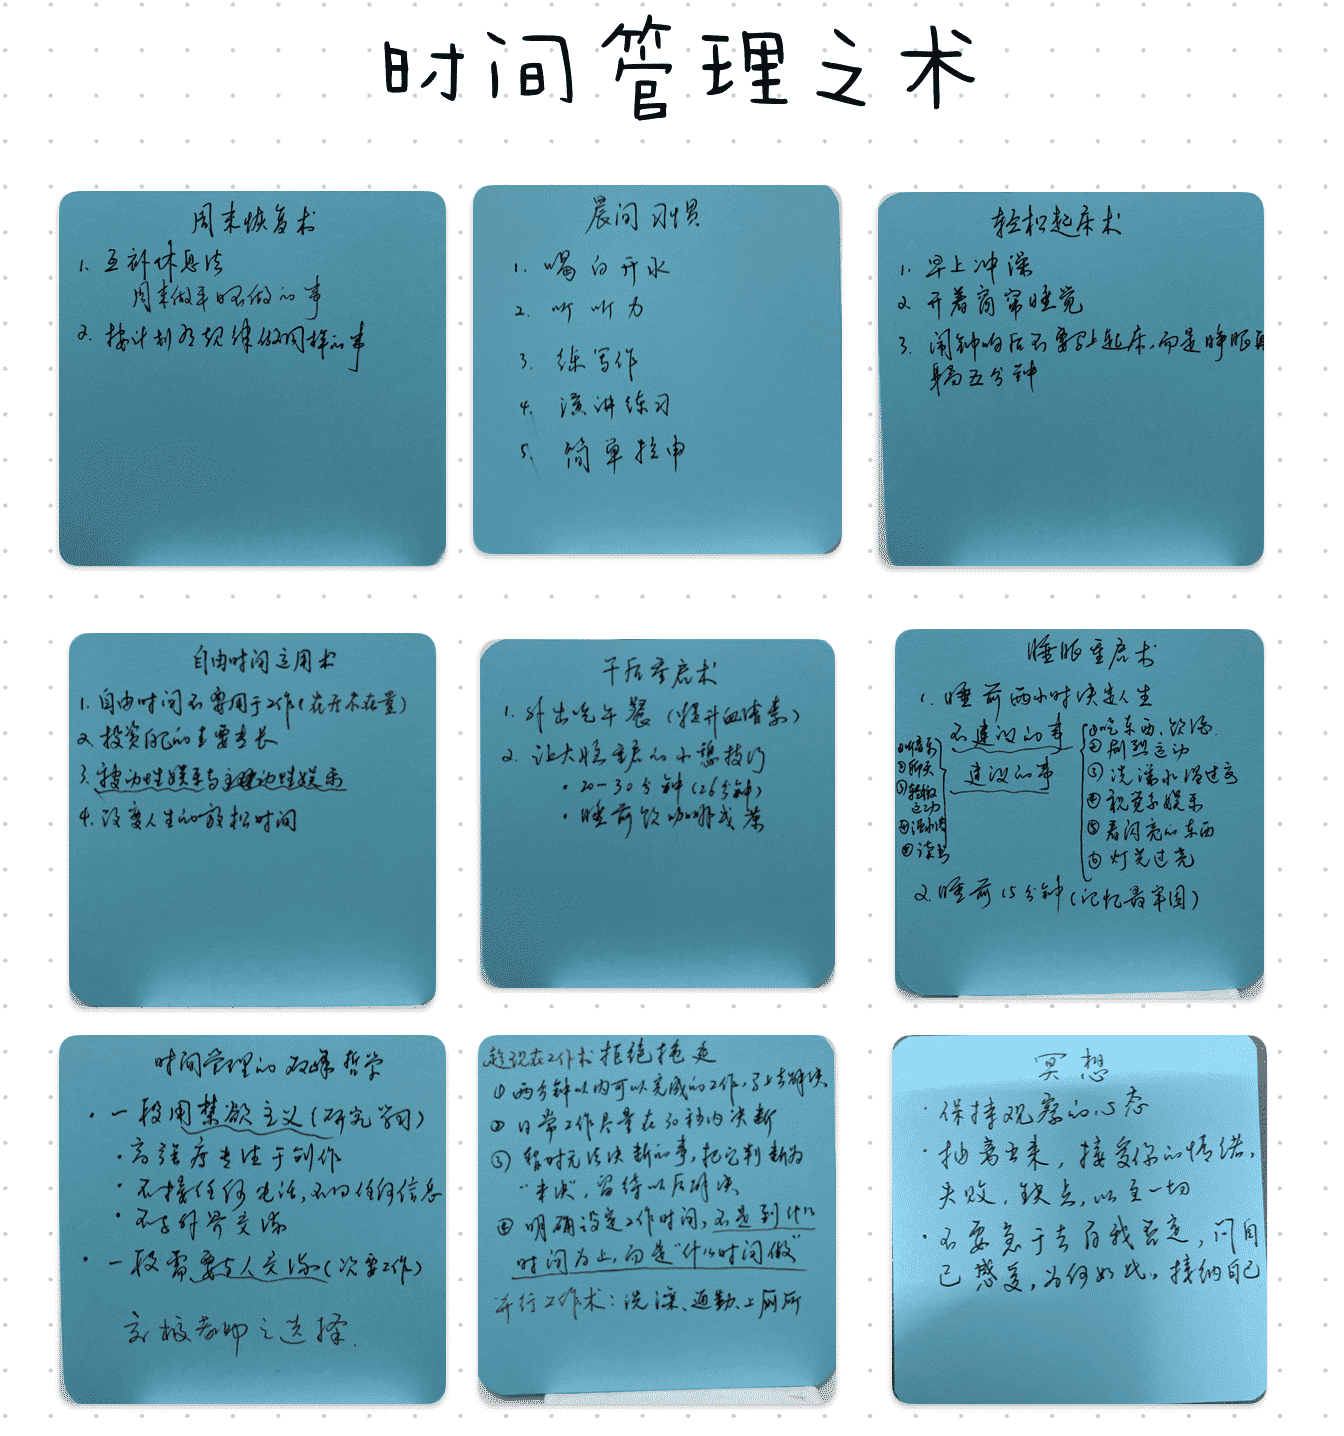 时间管理之术
周末恢复术
1. 互补休息法
周末做平时不做的事
2. 按计划有规律做同样的事
晨间习惯
1. 喝白开水
2. 听听力
3. 练写作
4. 演讲练习
5. 简单拉申
轻松起床术
1. 早上冲澡
2. 开着窗帘睡觉
3. 闹钟响后不要马上起床,而是睁眼
五分钟
自由时间运用术
1. 自由时间不要用于工作(在质不在量)
2. 投资自己的主要专长
3. 被动性娱乐与主动性娱乐
4. 改变人生的放松时间
午后重启术
1. 外出吃午餐(提升血清素)
2. 让大脑重启的小憩技巧
· 20-30分钟(26分钟)
· 睡前饮咖啡或茶
睡眠重启术
1. 睡前两小时决定人生
不建议的事
①吃东西、饮酒
②剧烈运动
③洗澡水温过高
④视觉系娱乐
⑤看闪亮的东西
⑥灯光过亮
建议的事
①听音乐
②聊天
③轻松运动
④泡澡
⑤读书
2. 睡前15分钟(记忆最牢固)
时间管理的双峰哲学
· 一段用禁欲主义(研究学习)
· 高强度专注于创作
· 不接任何电话,不回任何信息
· 不与外界交流
· 一段需要与人交流(次要工作)
高校教师之选择
超现在工作术 拒绝拖延
① 两分钟以内可以完成的工作,马上去解决
② 日常工作尽量在30秒内决断
③ 暂时无法决断的事,把它判断为
“未决”,留待以后解决
④ 明确设定工作时间,不是到什么
时间为止,而是“什么时间做”
并行工作术:洗澡、通勤、上厕所
冥想
· 保持观察的心态
· 抽离出来,接受你的情绪,
失败,缺点,以至一切
· 不要急于去自我否定,问自
己感受,为何如此,接纳自己